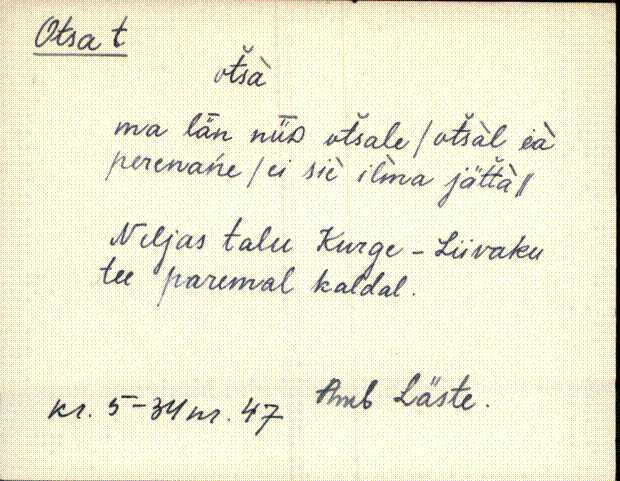 Otsa t
otšà
ma län nüD otšale / otšàl eà
perenańe / ei siè ilma jättà //
Neljas talu Kurge - Liivaku
tee paremal kaldal.
Amb Läste.
kr. 5-34 nr. 47